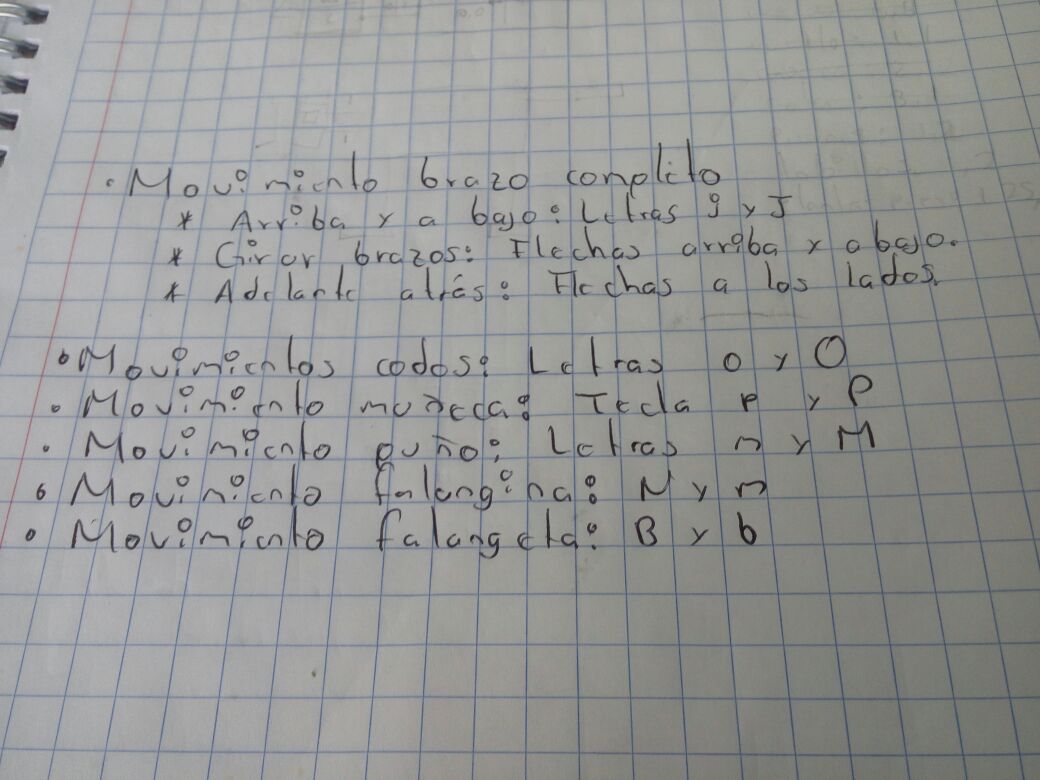 · Movimiento brazo completo
* Arriba y a bajo: Letras j y J
* Girar brazos: Flechas arriba y abajo.
* Adelante atrás: Flechas a los lados.
• Movimientos codos: Letras o y O
• Movimiento muñeca: Tecla p y P
• Movimiento puño: Letras m y M
• Movimiento falangina: N y n
• Movimiento falangeta: B y b